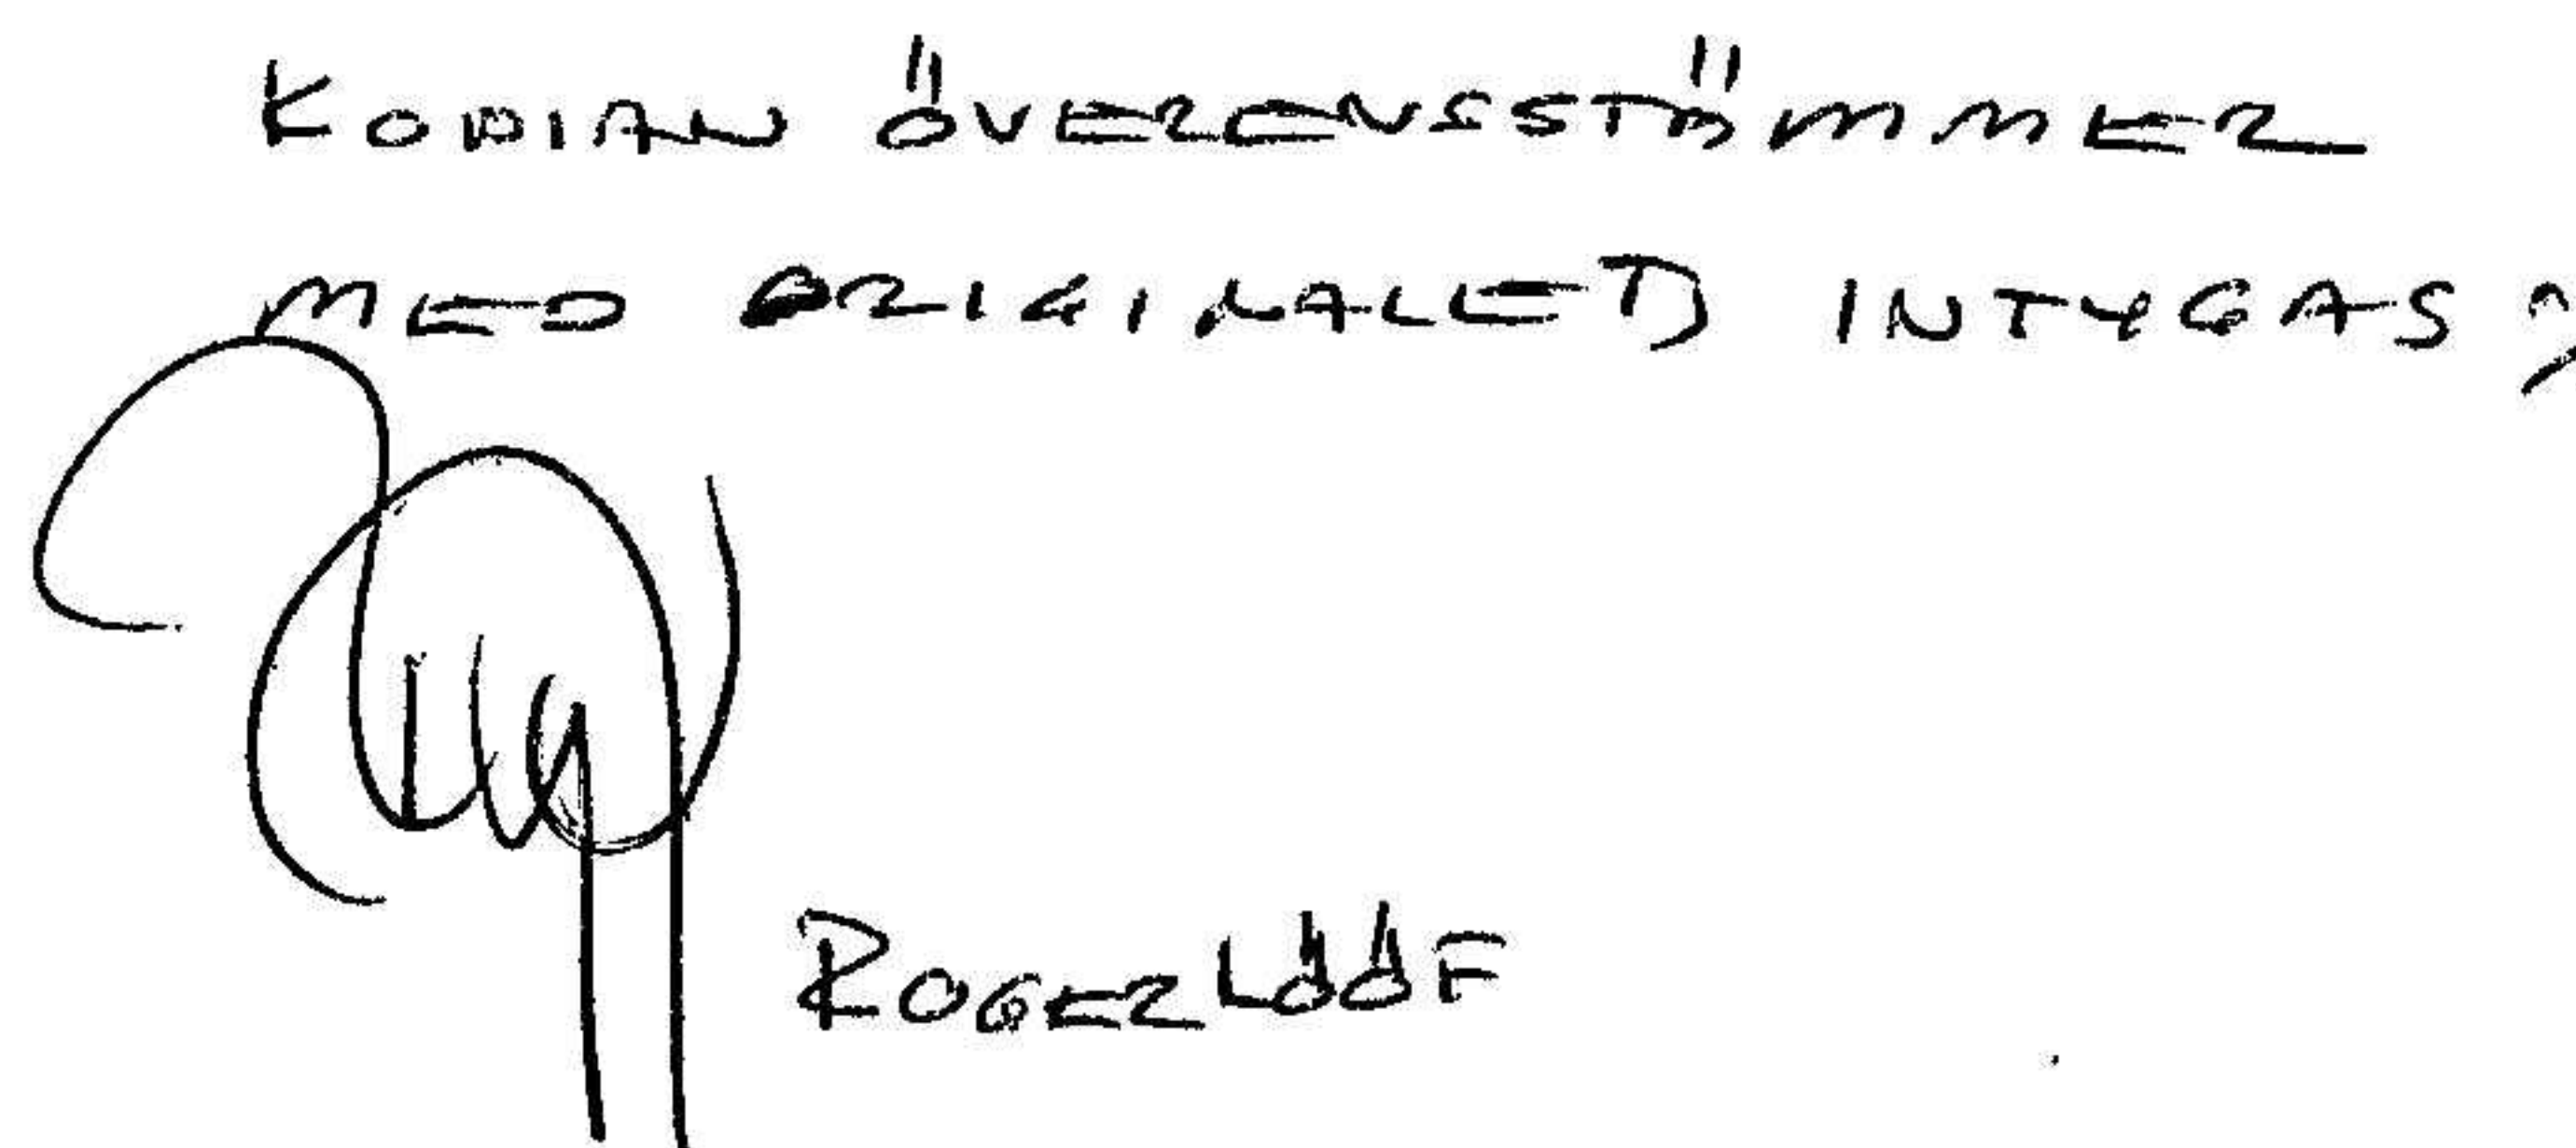 KOPIAN ÖVERENSSTÄMMER
MED ORIGINALET, INTYGAS,
ROGER LÖÖF